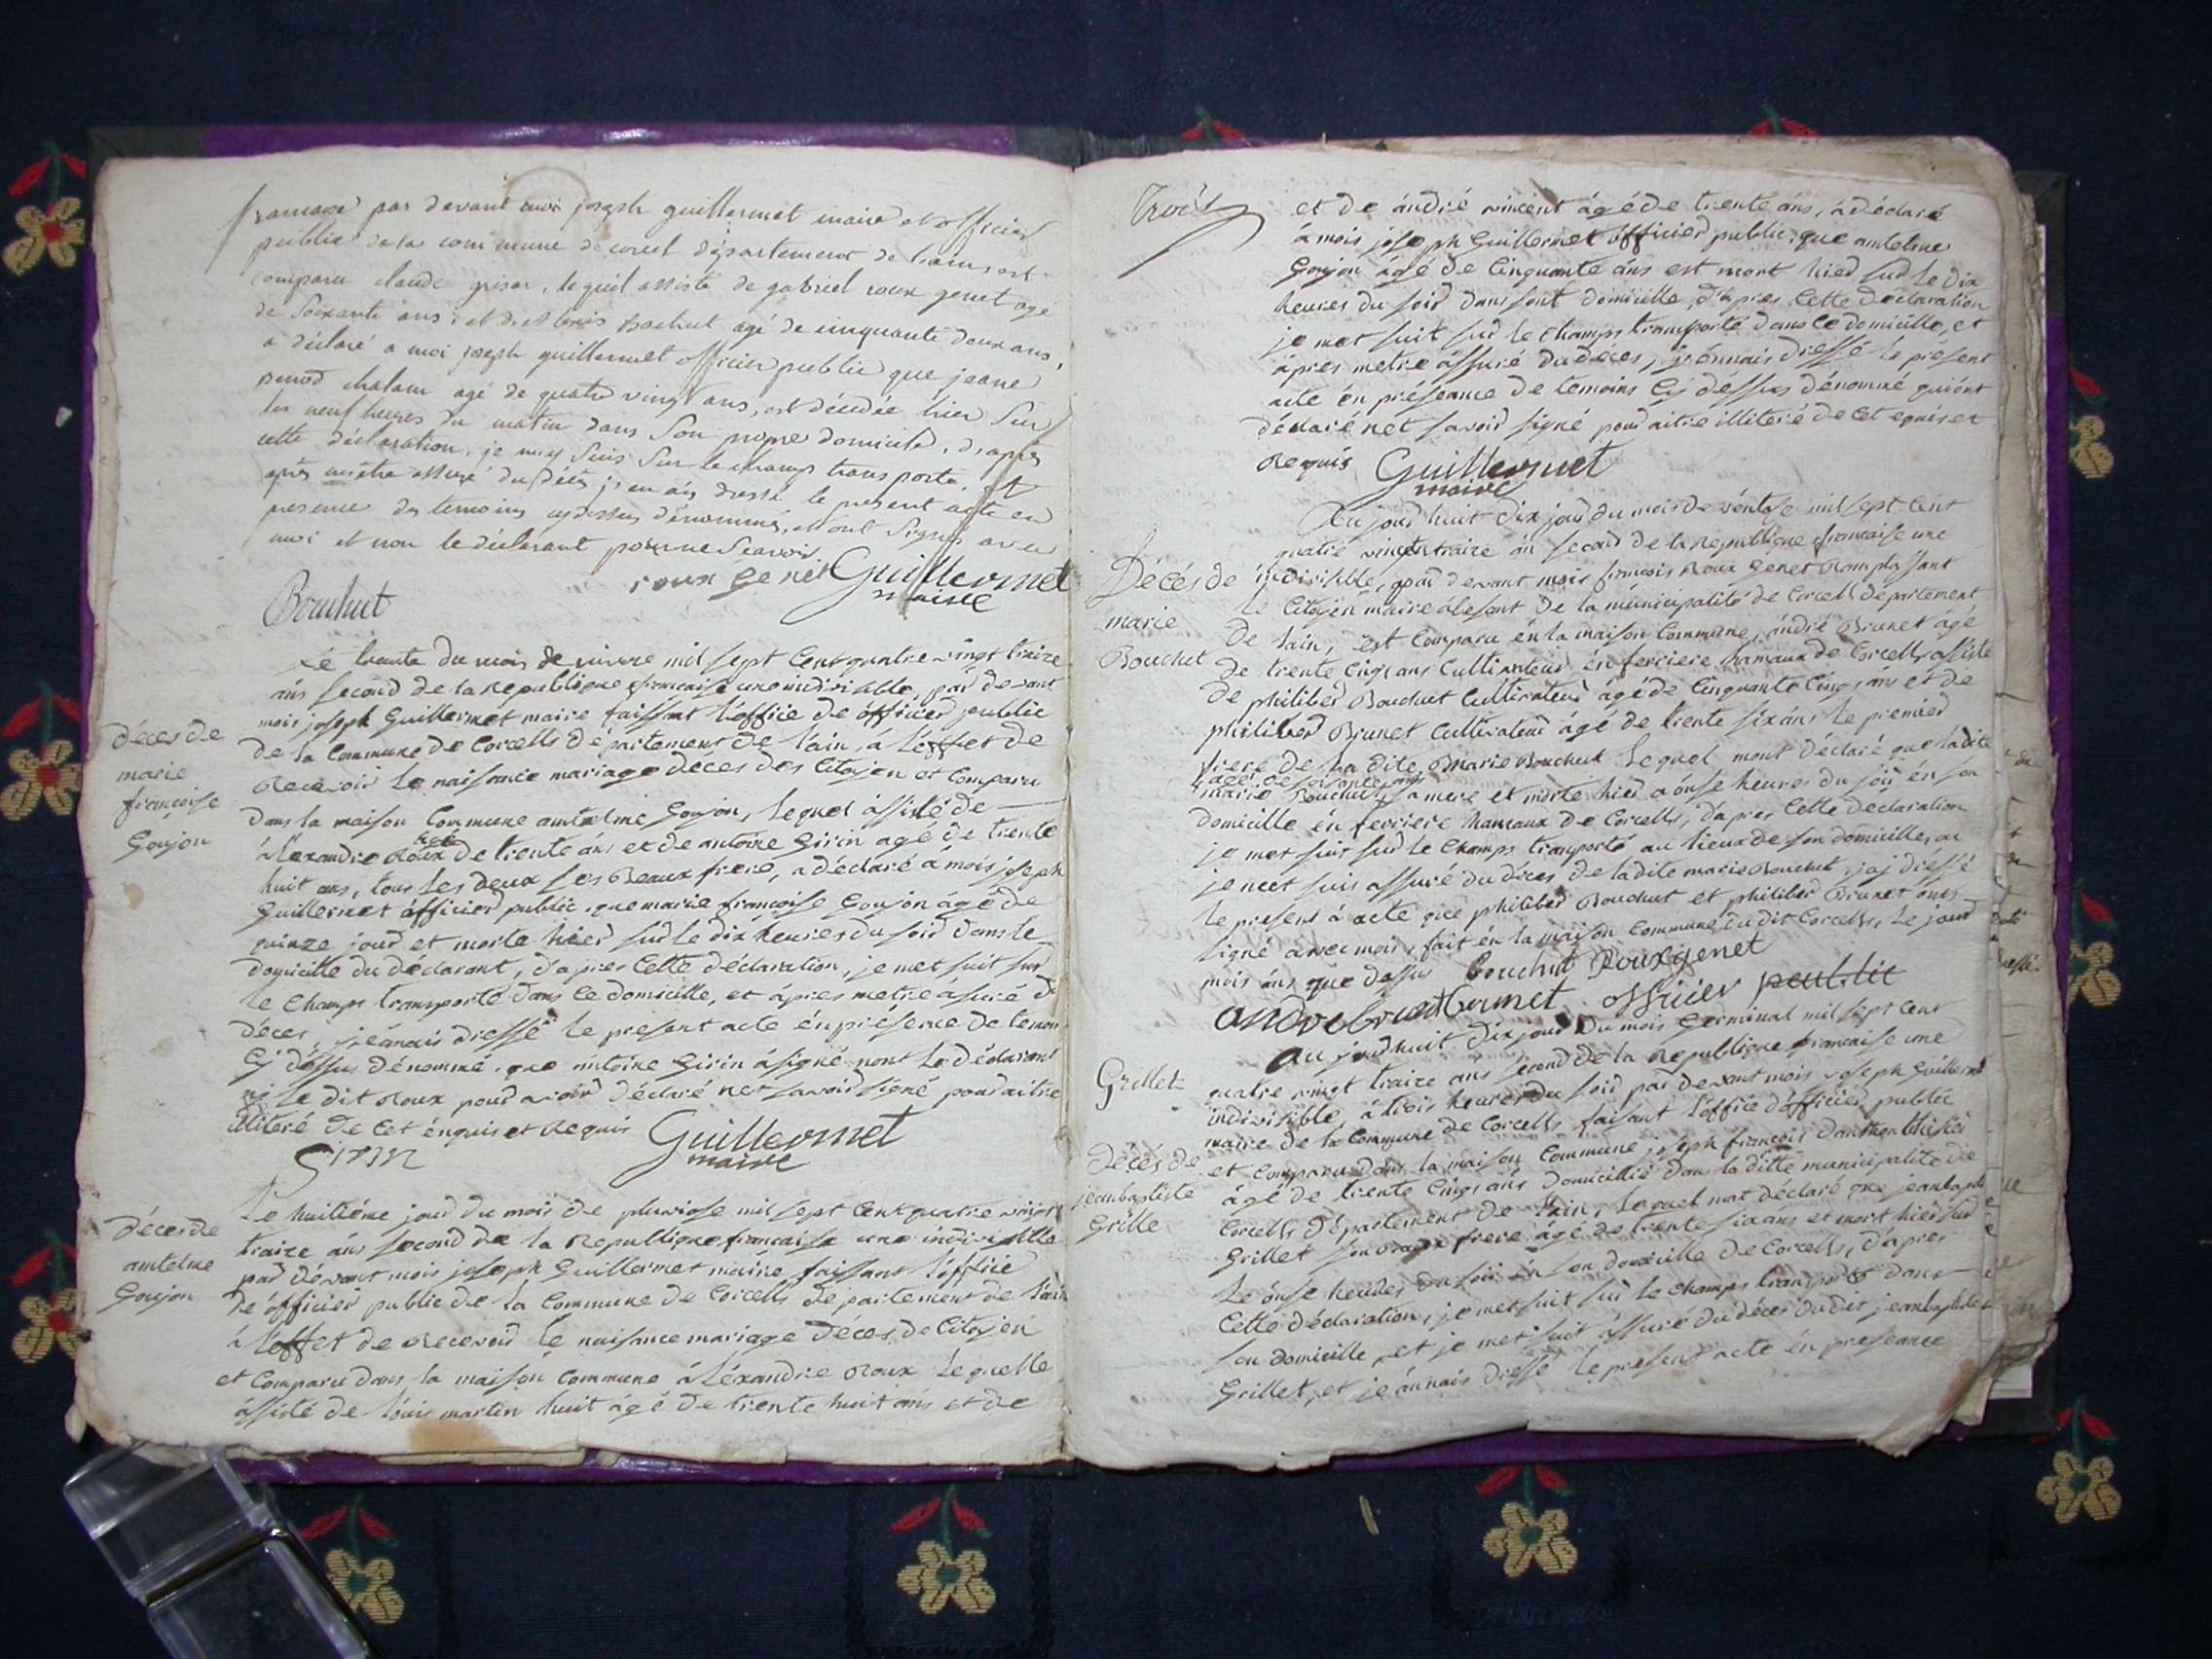 francaise par devant moi joseph guillermet maire et officier
public de la commune de corcel département de lain, est
comparu claude grisar, lequel assisté de gabriel roux genet agé
de soixante ans, et de Bochut agé de cinquante deux ans,
a déclaré a moi joseph guillermet officier public que jeane
chalam agé de quatre vingt ans, est décédée hier sur
les neuf heures du matin dans son propre domicile, d'apres
cette déclaration, je my suis sur le champ transporté, et
après métre assuré du décès j'en ais dressé le present acte en
presence des temoins cydessus dénommés, et ont signés avec
moi et non le déclarant pour ne scavoir
roux genet Guillermet
maire
Bouchut
Décés de
marie
francoise
Goujon
Le trante du mois de nivose mil sept Cent quatre vingt traize
ans second de la Republique francaise une indivisible, par devant
mois joseph Guillermet maire faissant l'office de officier public
de la Commune de Corcells département de l'ain, à Léffet de
Recevoir le naisance mariage décés des Citoyen et Comparu
dans la maison Commune amtelme Goujon, lequel assisté de
aléxandre Roux agé de trente ans et de antoine Girin agé de trente
huit ans, tous les deux ses Beaux frere, a déclaré a mois joseph
Guillermet officier public, que marie francoise Goujon agé de
quinze jour et morte hier sur le dix heures du soir dans le
domicille du déclarant, d'apres Cette déclaration, je met suit sur
le champs transporté dans le domicille, et apres metre assuré du
déces, jeannais dressé le present acte én présence de temoin
Cy dessus dénommé, que antoine Girin a signé nont le déclarant
ni le dit Roux pour avoir déclaré net savoir signé pour aitre
illiteré de Cet énquis et Requis Guillermet
Girin maire
Décés de
amtelme
Goujon
Le huitiéme jour du mois de pluviose mil sept Cent quatre vingt
traize áns second de la Republique francaise une indivisible
par dévant mois joseph Guillermet maire faissant l'office
de officier public de la Commune de Corcells département de lain
à Léffet de Recevoir le naisance mariage décés de Citoyen
et Comparu dans la maison Commune aléxandre Roux lequelle
assisté de louis martin huit ágé de trente huit ans et de
Trois
et de ándré vincent ágé de trente áns, a déclaré
á mois joseph Guillermet officier public, que amtelme
Goujon ágé de Cinquante áns est mort hier sur le dix
heures du soir dans sont domicille, d'apres Cette déclaration
je met suit sur le champs transporté dans le domicille, et
ápres metre ássuré du déces, jeánnais dressé le présent
acte én préseance de temoins Cy dessus dénommé qui ont
déclaré net savoir signé pour aitre illiteré de Cet equis et
Requis Guillermet
maire
Décés de
marie
Bouchut
Au jourd huit dix jour du mois de véntose mil sept Cent
quatre vingt traize án second de la Republique francaise une
indivisible, par devant mois francois Roux Genet Remplassant
le Citoyén maire de la municipalité de Corcell département
de lain, est Comparu én la maison Commune, ándré Brunet ágé
de trente Cinq ans Cultivateur én ferriere hamaux de Corcells assisté
de philiber Bouchut Cultivateur ágé de Cinquante Cinq áns et de
philiber Brunet Cultivateur ágé de trente six áns le premier
frere de la dite Marie Bouchut lequel mont déclaré que la dite
agé de soisante ans
marie Bouchut, sa mere et morte hier a ónse heures du soir én son
domicille én ferriere hameaux de Corcells, d'apres Cette déclaration
je met suis sur le champs transporté au lieux de son domicille, ou
je meet suis assuré du déces de ladite marie Bouchut, jaj dressé
le present á acte que philiber Bouchut et philiber Brunet ónt
signé avec mois, fait én la maison Commune du dit Corcells, le jour
mois áns que dessus bouchut Rouxgenet
andre brunet officier peublic
Grillet
Décés de
jeanbaptiste
Grille
Au jourd huit dix jour du mois Germinal mil sept Cent
quatre vingt traize ans second de la Republique francaise une
indivisible, á trois heures du soir par devant mois joseph Guillermet
maire de la Commune de Corcells faisant l'office d'officier public
et Comparu dans la maison Commune joseph francois
ágé de trente Cinq ans domicillié dans la ditte municipalité de
Corcells département de lain, lequel mat déclaré que jeanbaptiste
Grillet son Beaux frere ágé de trente six áns et mort hier sur
le ónse heures du soir én son domicille de Corcells, d'apres
Cette déclaration, je met suit sur le champs transporté dans
son domicille, et je met suit ássuré du déces du dit jeanbaptiste
Grillet, et je ánnais dressé le present acte én preseance